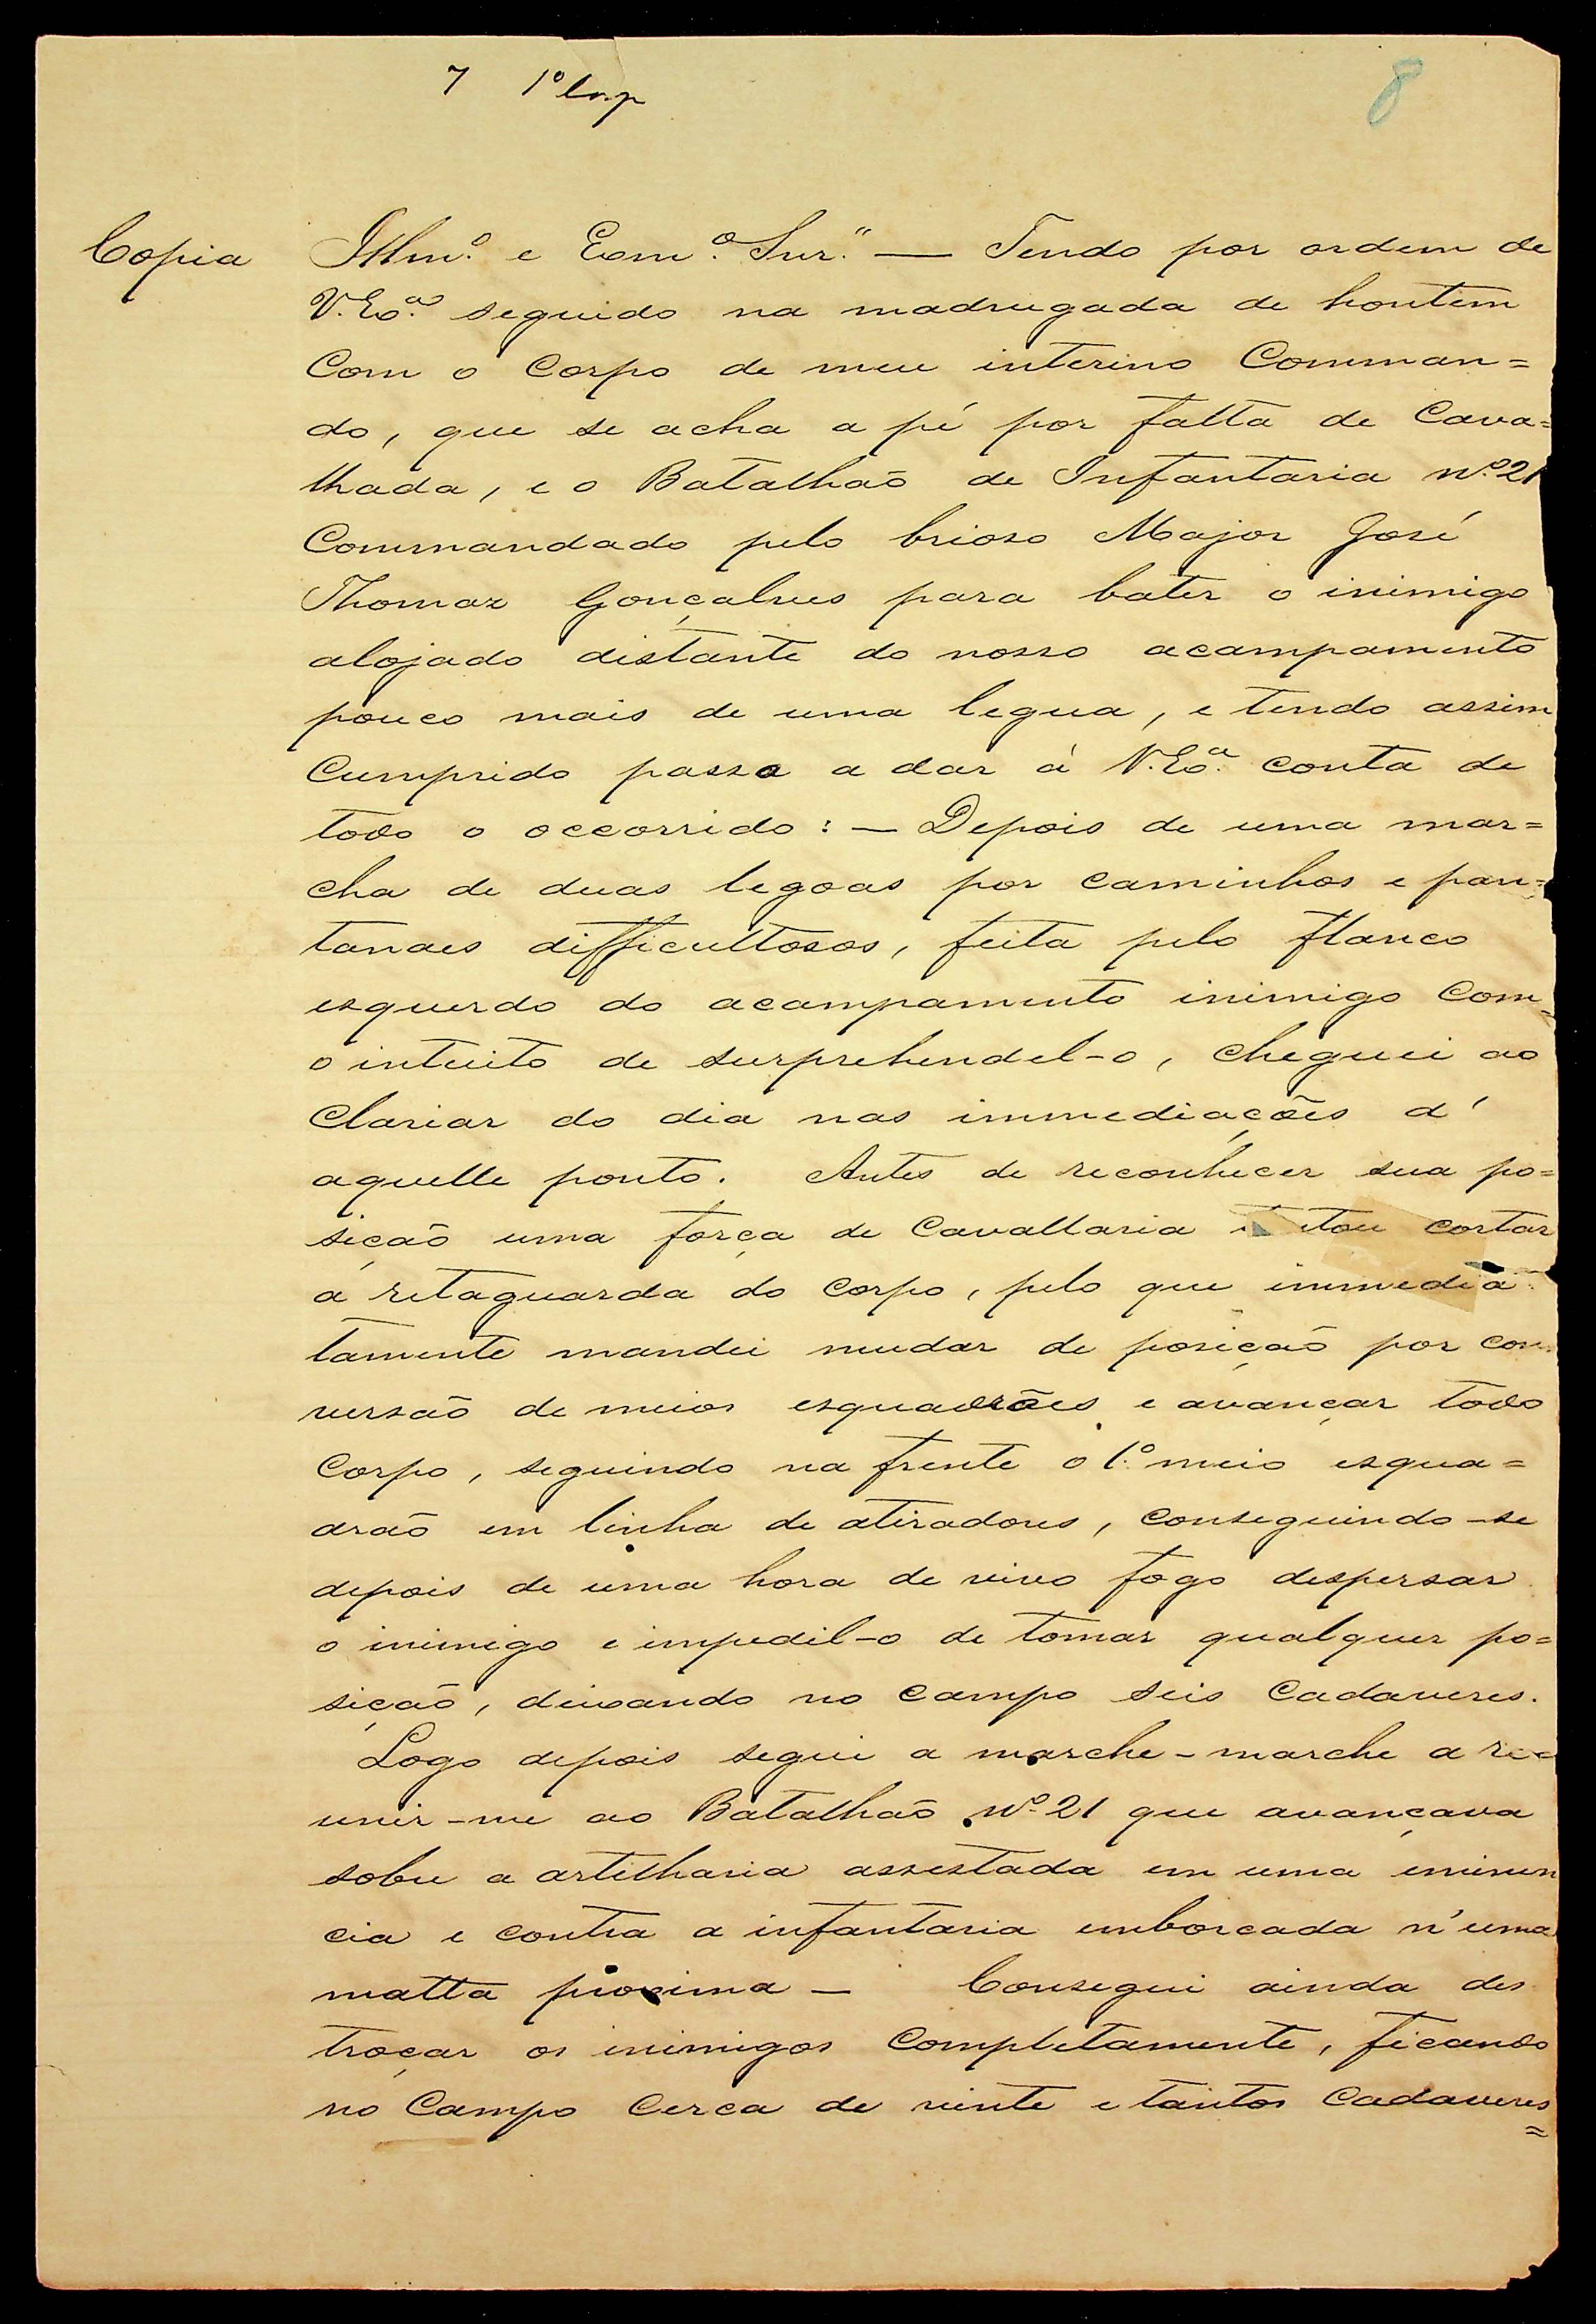 7 1º
8
Copia
Illmº e Exmº Snr." — Tendo por ordem de
V. Exª seguido na madrugada de hontem
Com o Corpo de meu interino Comman=
do, que se acha a pé por falta de Cava=
lhada, e o Batalhão de Infantaria Nº 21
Commandado pelo brioso Major José
Thomaz Gonçalves para bater o inimigo
alojado distante do nosso acampamento
pouco mais de uma legua, e tendo assim
Cumprido passo a dar á V. Exª conta de
todo o occorrido: — Depois de uma mar=
cha de duas legoas por caminhos e pan=
tanaes difficultosos, feita pelo flanco
esquerdo do acampamento inimigo Com
o intuito de surprehendel-o, cheguei ao
Clariar do dia nas immediações d'
aquelle ponto. Antes de reconhecer sua po=
sição uma força de Cavallaria cortar
a retaguarda do Corpo, pelo que immedia
tamente mandei mudar de posição por con
versão de meios esquadrões e avançar todo
Corpo, seguindo na frente o 1º meio esqua=
drão em linha de atiradores, Conseguindo-se
depois de uma hora de vivo fogo despersar
o inimigo e impedil-o de tomar qualquer po=
sição, deixando no Campo seis Cadaveres.
Logo depois segui a marche-marche a re=
unir-me ao Batalhão Nº 21 que avançava
sobre a artilharia assestada em uma eminen
cia e contra a infantaria emborcada n'uma
matta proxima — Consegui ainda des
troçar os inimigos Completamente, ficando
no Campo Cerca de vinte e tantos Cadaveres=